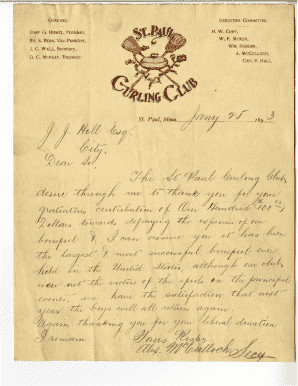 OFFICERS.
EXECUTIVE COMMITTEE.
H. W. CORY,
W. F. MYRON,
A. McCULLOCH,
GEO. P. HALL.
J. C. WALL, SECRETARY.
ST. PAUL
CURLING CLUB
ST. PAUL, MINN. Jany 25 1893
J. J. Hill Esq.
City.
Dear Sir
The St Paul Curling Club
desire through me to thank you for your
gratuitous contribution of One Hundred $100
Dollars towards defraying the expense of our
bonspiel & I can assure you it has been
the largest & most successful bonspiel ever
held in the United States, although our club
was not the victors of the in the principal
events, we have the satisfaction that next
year the boys will all return again.
Again thanking you for your liberal donation
I remain
Yours
Alex McCulloch Secy